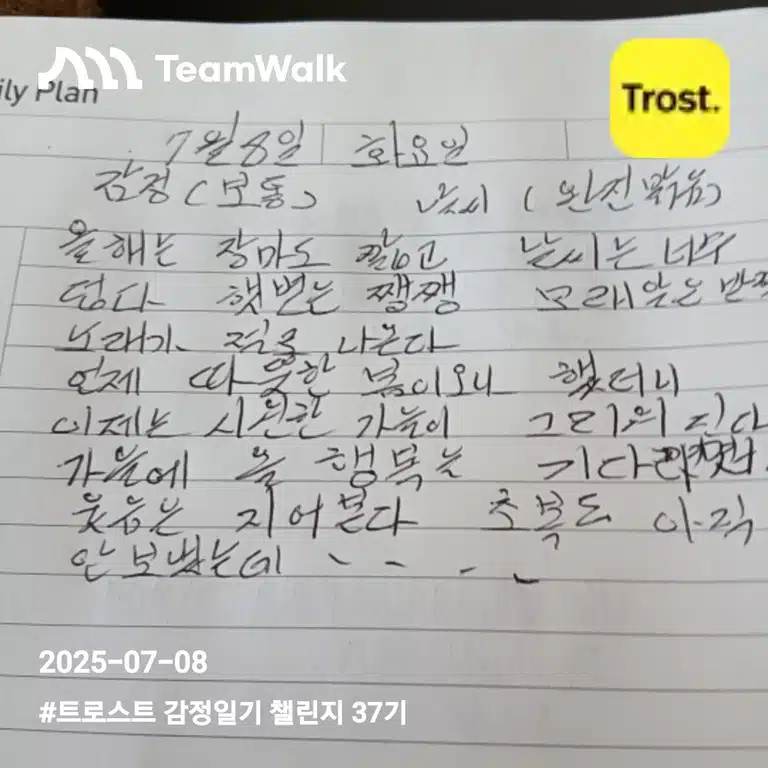 TeamWalk
ily Plan
Trost.
7월 8일 화요일
감정 (보통) 날씨 (완전 맑음)
올해는 장마도 짧고 날씨는 너무
덥다 햇볕는 쨍쨍 모래알은 반짝
노래가 절로 나온다
언제 따뜻한 봄이오나 했더니
이제는 시원한 가늘이 그리워 진다
가을에 올 행복늘
웃음은 지어본다 초복도 아직
안 보냈는데 - - - -
2025-07-08
#트로스트 감정일기 챌린지 37기